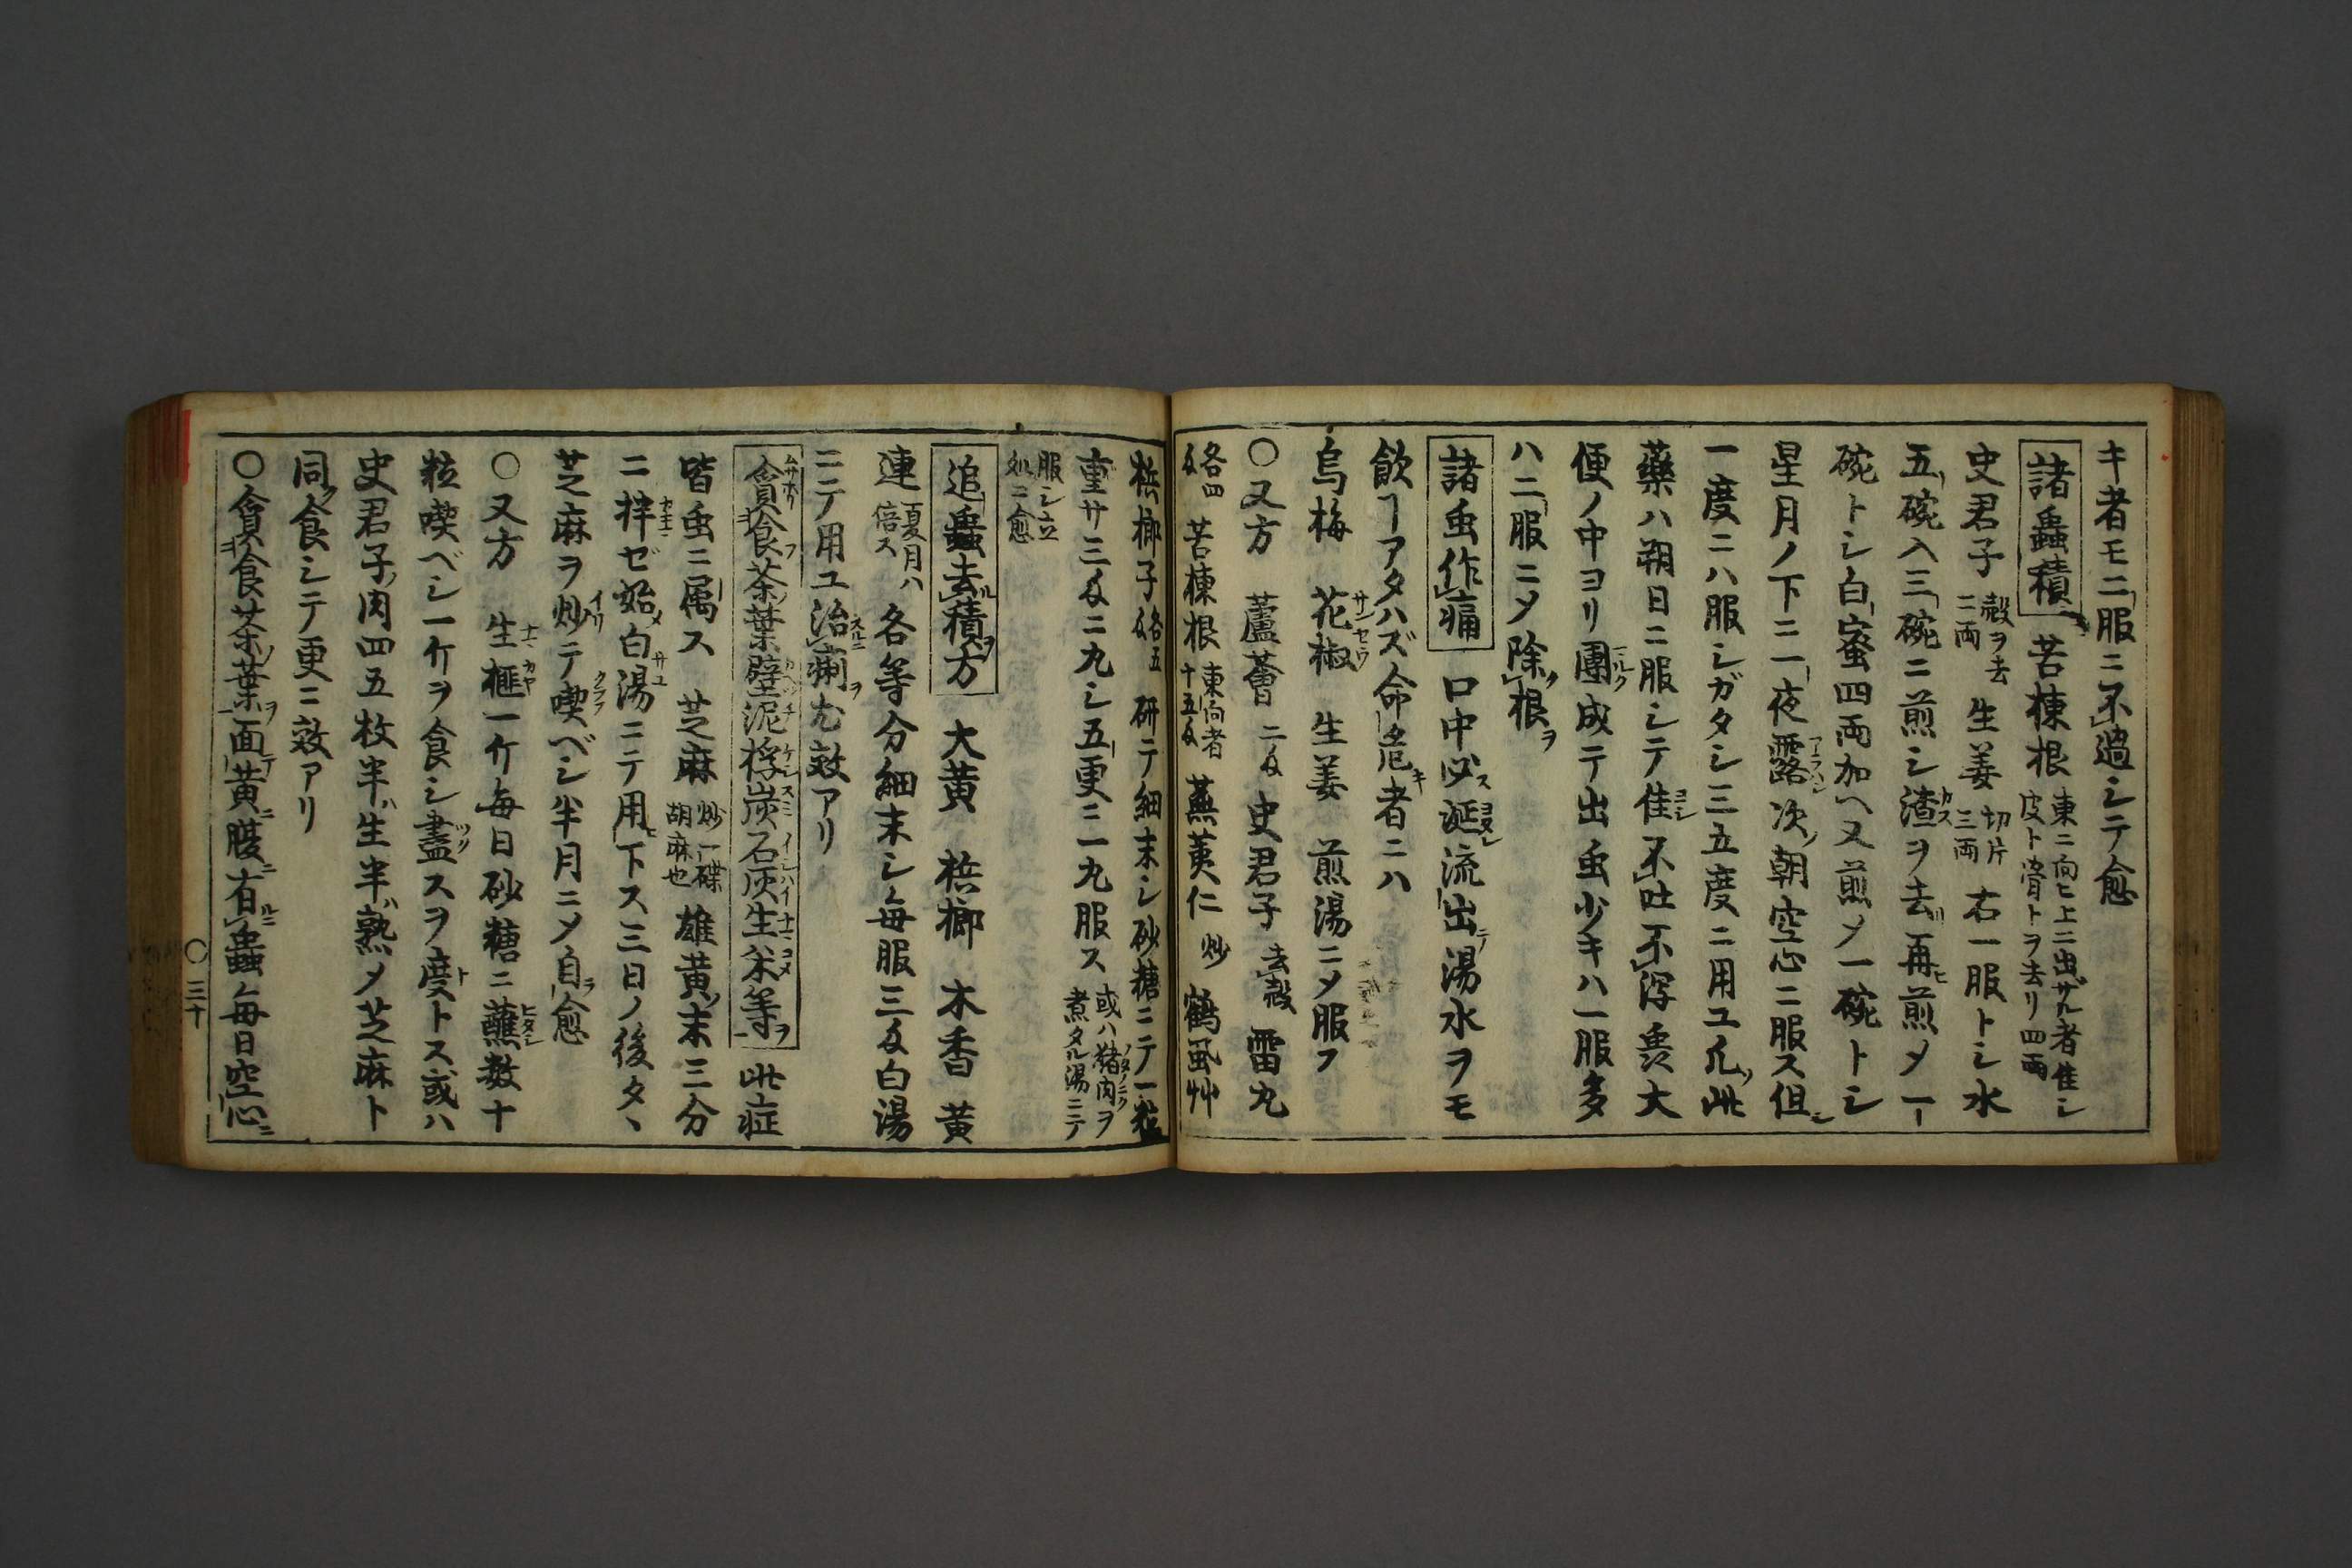 キ者モ二服ニ不過シテ愈
諸蟲積 苦棟根 東ニ向ヒ上ニ出ザル者佳シ皮ト滑トヲ去リ四両
史君子 殻ヲ去二両 生姜 切片三両 右一服トシ水
五碗入三碗ニ煎シ渣ヲ去再煎メ一
碗トシ白蜜四両加ヘ又煎メ一碗トシ
星月ノ下ニ一夜露次朝空心ニ服ス但
一度ニハ服シガタシ三五度ニ用ユ凡此
藥ハ朔日ニ服シテ佳不吐不瀉糞大
便ノ中ヨリ團成テ出虫少キハ一服多
ハ二服ニメ除根ヲ
諸虫作痛 口中必涎流出湯水ヲモ
飲ヿアタハズ命危者ニハ
烏梅 花椒 生姜 煎湯ニメ服フ
〇又方 蘆薈 二匁 史君子 去殻 雷丸
各四匁 苦棟根 東向者十五匁 蕪荑仁 炒 鶴虱艸
梹榔子 各五匁 研テ細末シ砂糖ニテ一粒
重サ三匁ニ丸シ五更ニ一丸服ス 或ハ猪肉ヲ煮タル湯ニテ
服シ立処ニ愈
追蟲去積方 大黄 梹榔 木香 黄
連 夏月ハ倍ス 各等分細末シ毎服三匁白湯
ニテ用ユ治痢尤效アリ
貪食茶葉壁泥桴炭石灰生米等 此症
皆虫ニ属ス 芝麻 炒一碟胡麻也 雄黄末三分
ニ拌ゼ始白湯ニテ用下ス三日ノ後タヽ
芝麻ヲ炒テ喫ベシ半月ニメ自愈
〇又方 生榧一ケ毎日砂糖ニ蘸数十
粒喫ベシ一ケヲ食シ盡スヲ度トス或ハ
史君子肉四五枚半生半熟メ芝麻ト
同食シテ更ニ效アリ
〇貪食茶葉面黄腹有蟲毎日空心ニ
〇三十